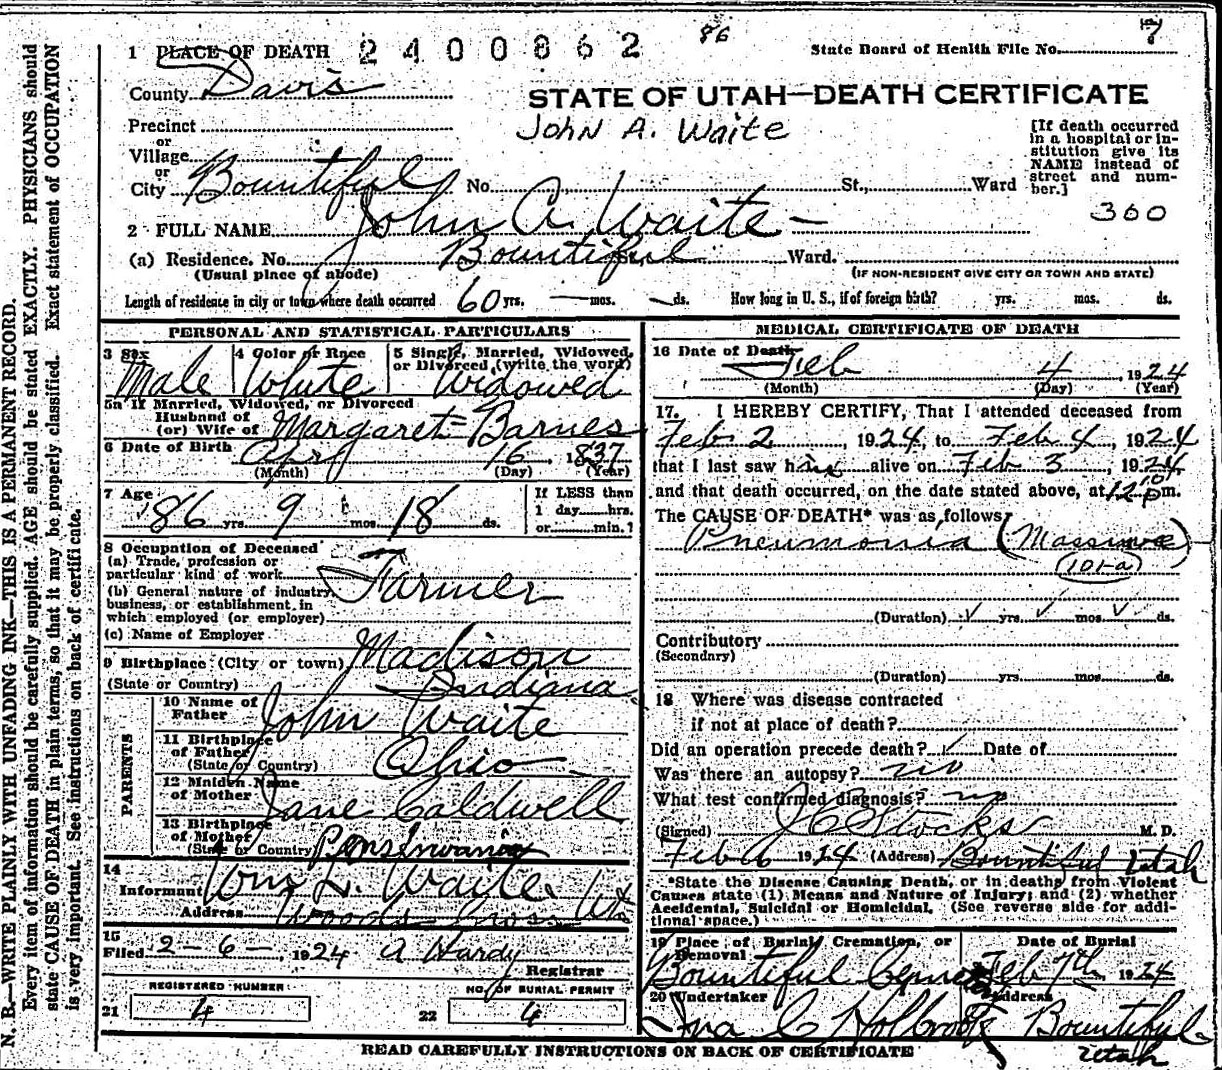 N. B.—WRITE PLAINLY WITH UNFADING INK—THIS IS A PERMANENT RECORD.
Every item of information should be carefully supplied. AGE should be stated EXACTLY. PHYSICIANS should
state CAUSE OF DEATH in plain terms, so that it may be properly classified. Exact statement of OCCUPATION
is very important. See instructions on back of certificate.
1 PLACE OF DEATH 2400862 86 State Board of Health File No. 7
County Davis
STATE OF UTAH—DEATH CERTIFICATE
Precinct
or
Village
or
City Bountiful No. St., Ward
John A. Waite
[If death occurred
in a hospital or in-
stitution give its
NAME instead of
street and num-
ber.]
360
2 FULL NAME John A. Waite —
(a) Residence. No. Bountiful St., Ward.
(Usual place of abode) (IF NON-RESIDENT GIVE CITY OR TOWN AND STATE)
Length of residence in city or town where death occurred 60 yrs. — mos. — ds. How long in U. S., if of foreign birth? yrs. mos. ds.
PERSONAL AND STATISTICAL PARTICULARS
3 Sex
Male
4 Color or Race
White
5 Single, Married, Widowed,
or Divorced (write the word)
Widowed
5a If Married, Widowed, or Divorced
Husband of
(or) Wife of Margaret Barnes
6 Date of Birth April 16, 1837
(Month) (Day) (Year)
7 Age
86 yrs. 9 mos. 18 ds.
If LESS than
1 day hrs.
or min.?
8 Occupation of Deceased
(a) Trade, profession or
particular kind of work Farmer
(b) General nature of industry,
business, or establishment in
which employed (or employer)
(c) Name of Employer
9 Birthplace (City or town) Madison
(State or Country) Indiana
PARENTS
10 Name of
Father John Waite
11 Birthplace
of Father
(State or Country) Ohio
12 Maiden Name
of Mother Jane Caldwell
13 Birthplace
of Mother
(State or Country)
14
Informant Wm L. Waite
Address Woods Cross Uta
15
Filed 2-6-, 1924 A Hardy
Registrar
REGISTERED NUMBER
21 4
NO. OF BURIAL PERMIT
22 4
MEDICAL CERTIFICATE OF DEATH
16 Date of Death
Feb 4 1924
(Month) (Day) (Year)
17. I HEREBY CERTIFY, That I attended deceased from
Feb 2, 1924, to Feb 4, 1924
that I last saw him alive on Feb 3, 1924
and that death occurred, on the date stated above, at 12 10 pm.
The CAUSE OF DEATH* was as follows:
Pneumonia (Massive)
(101-a)
(Duration) yrs. mos. ds.
Contributory
(Secondary)
(Duration) yrs. mos. ds.
18 Where was disease contracted
if not at place of death?
Did an operation precede death? Date of
Was there an autopsy? no
What test confirmed diagnosis? no
(Signed) J C Stocks M. D.
Feb 6 1924 (Address) Bountiful Utah
*State the Disease Causing Death, or in deaths from Violent
Causes state (1) Means and Nature of Injury; and (2) whether
Accidental, Suicidal or Homicidal. (See reverse side for addi-
tional space.)
19 Place of Burial, Cremation, or
Removal
Bountiful
Date of Burial
Feb 7th, 1924
20 Undertaker
Holbrook
Address
Bountiful
Utah
READ CAREFULLY INSTRUCTIONS ON BACK OF CERTIFICATE